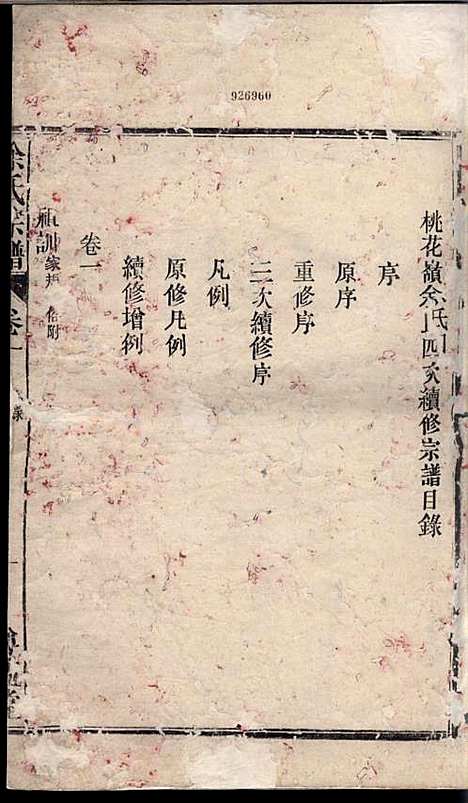 926960
桃花嶺余氏四次續修宗譜目錄
序
原序
重修序
三次續修序
凡例
原修凡例
續修增例
卷一
祖訓 家規 附
余氏宗譜 卷一